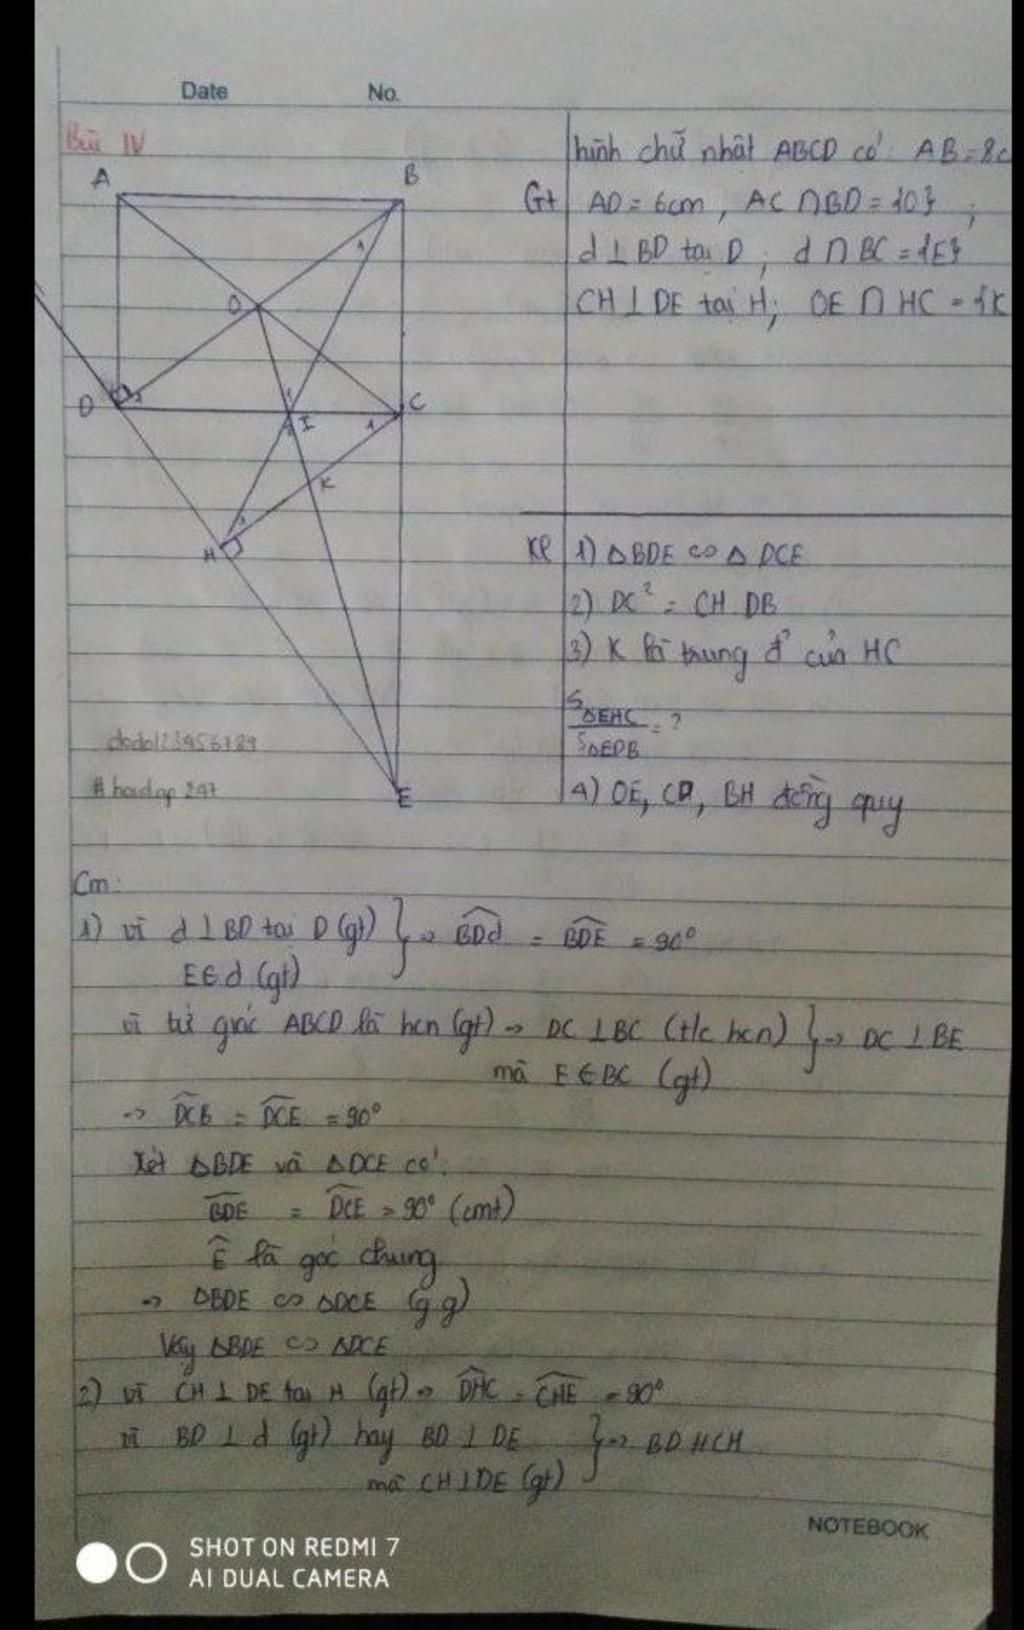 Date No.
Bài IV
hình chữ nhật ABCD có: AB = 8c
Gt AD = 6cm, AC ∩ BD = {O};
d ⊥ BD tại D; d ∩ BC = {E}
CH ⊥ DE tại H; OE ∩ HC = {K
A B
1
O
D I 1 C
K
H
E
Kl 1) ΔBDE ∽ ΔDCE
2) DC² = CH DB
3) K là trung đ' của HC
SΔEHC
= ?
SΔEDB
4) OE, CD, BH đồng quy
dodo123456789
#hoidap 247
Cm:
1) vì d ⊥ BD tại D (gt) } → BDd = BDE = 90°
E ∈ d (gt)
vì tứ giác ABCD là hcn (gt) → DC ⊥ BC (t/c hcn) } → DC ⊥ BE
mà E ∈ BC (gt)
→ DCB = DCE = 90°
Xét ΔBDE và ΔDCE có:
BDE = DCE = 90° (cmt)
Ê là góc chung
→ ΔBDE ∽ ΔDCE (g.g)
Vậy ΔBDE ∽ ΔDCE
2) vì CH ⊥ DE tại H (gt) → DHC = CHE = 90°
vì BD ⊥ d (gt) hay BD ⊥ DE } → BD // CH
mà CH ⊥ DE (gt)
NOTEBOOK
SHOT ON REDMI 7
AI DUAL CAMERA